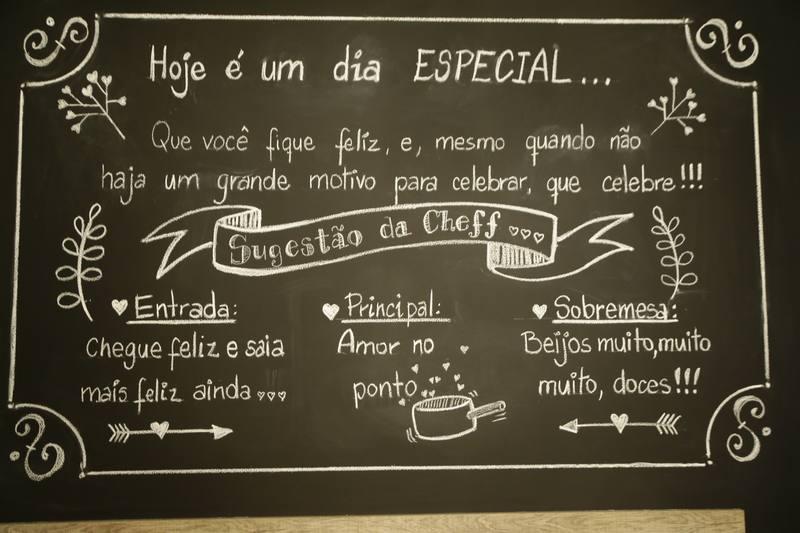 Hoje é um dia ESPECIAL...
Que você fique feliz, e, mesmo quando não
haja um grande motivo para celebrar, que celebre!!!
Sugestão da Cheff ♡♡♡
♥Entrada:
Chegue feliz e saia
mais feliz ainda ♡♡♡
♥Principal:
Amor no
ponto
♥Sobremesa:
Beijos muito,muito
muito, doces!!!